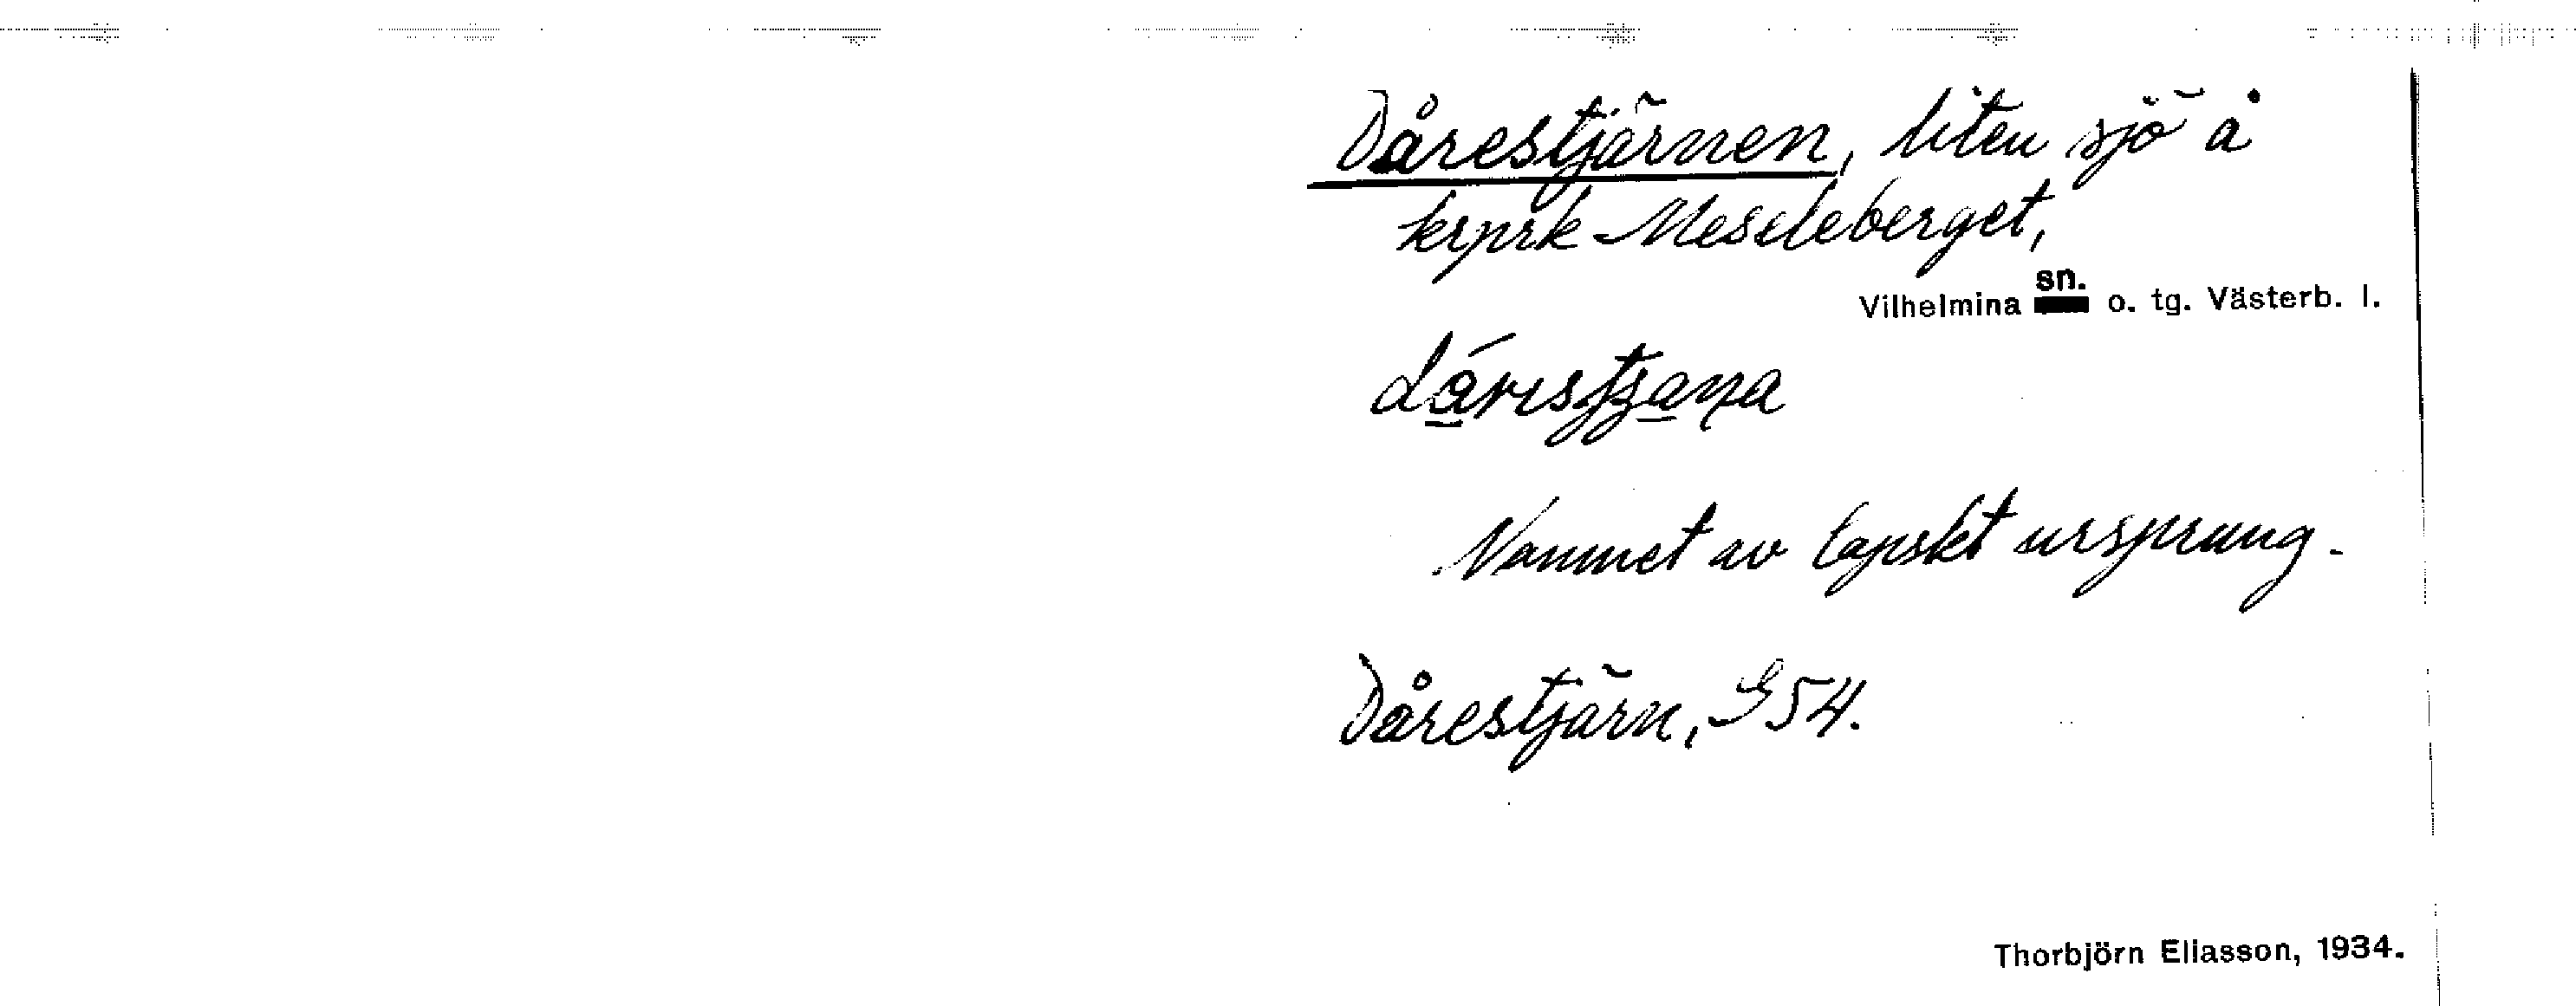 Dårestjärnen, liten sjö å
krprk Meseleberget,
Vilhelmina sn. o. tg. Västerb. l.
Namnet av lapskt ursprung.
Dårestjärn, G 54.
Thorbjörn Eliasson, 1934.